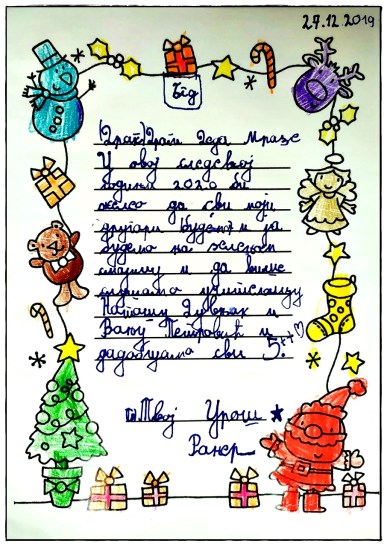 27.12.2019
Драги Деда Мразе
У овој следећој
години 2020 би
желео да сви моји
другари будемо и да
будемо на зеленом
и да више
слушамо учитељицу
Наташу и
Вању Петровић и
да добијамо сви 5++
Твој Урош